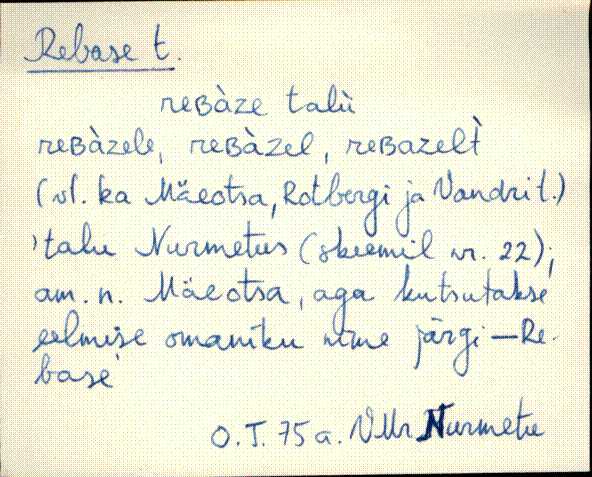 Rebase t.
reʙàze talù
reʙàzele, reʙàzel, reʙazelt̀
(vt. ka Mäeotsa, Rotbergi ja Vandri t.)
'talu Nurmetus (skeemil nr. 22);
am. n. Mäeotsa, aga kutsutakse
eelmise omaniku nime järgi – Re-
base'
O. T. 75 a. VMr Nurmetu